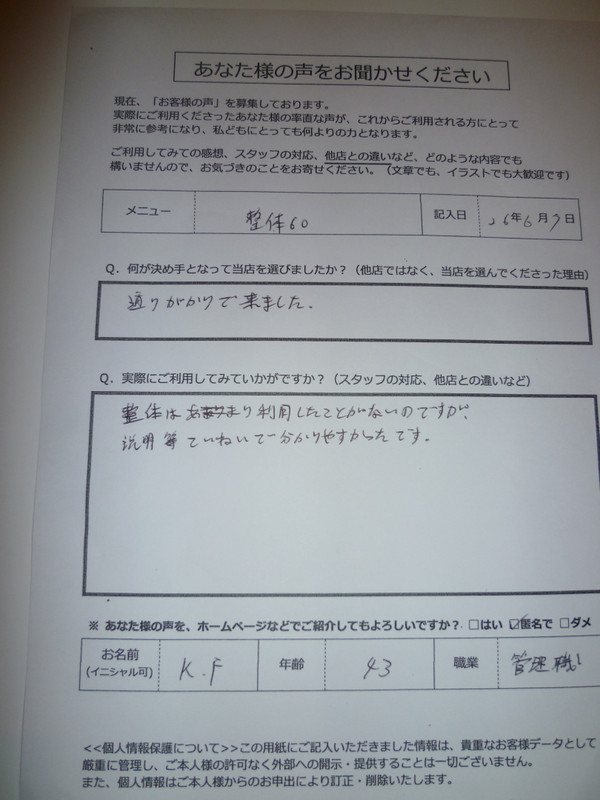 あなた様の声をお聞かせください
現在、「お客様の声」を募集しております。
実際にご利用くださったあなた様の率直な声が、これからご利用される方にとって
非常に参考になり、私どもにとっても何よりの力となります。
ご利用してみての感想、スタッフの対応、他店との違いなど、どのような内容でも
構いませんので、お気づきのことをお寄せください。（文章でも、イラストでも大歓迎です）
メニュー 整体60 記入日 26年6月7日
Q. 何が決め手となって当店を選びましたか？（他店ではなく、当店を選んでくださった理由）
通りがかりで来ました.
Q. 実際にご利用してみていかがですか？（スタッフの対応、他店との違いなど）
整体はあまり利用したことがないのですが、
説明等ていねいで分かりやすかったです。
※ あなた様の声を、ホームページなどでご紹介してもよろしいですか？ □はい ☑匿名で □ダメ
お名前 K.F 年齢 43 職業 管理職
(イニシャル可)
<<個人情報保護について>>この用紙にご記入いただきました情報は、貴重なお客様データとして
厳重に管理し、ご本人様の許可なく外部への開示・提供することは一切ございません。
また、個人情報はご本人様からのお申出により訂正・削除いたします。